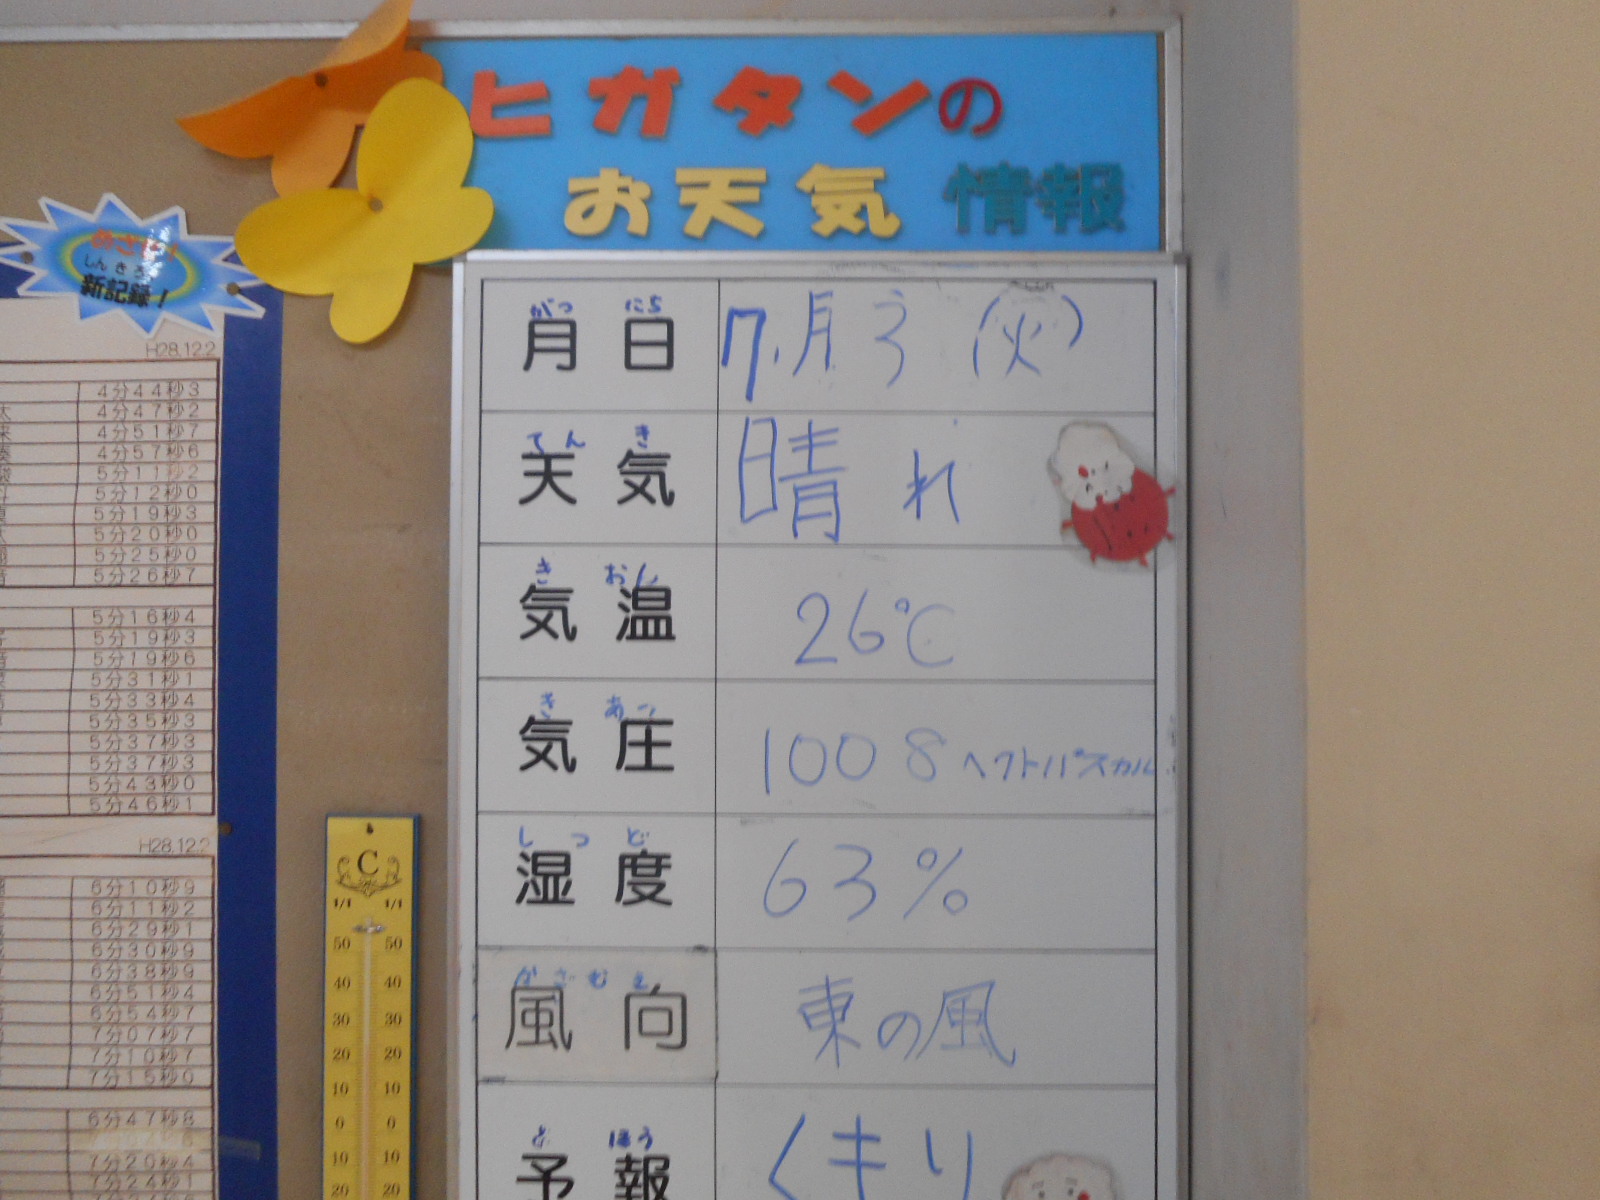 ヒガタンの
お天気情報
めざせ!
しんきろく
新記録!
がつ にち
月日 7月3(火)
てん き
天気 晴れ
き おん
気温 26℃
き あつ
気圧 1008ヘクトパスカル
しつ ど
湿度 63%
かざむき
風向 東の風
よ ほう
予報 くもり
H28.12.2
4分44秒3
4分47秒2
4分51秒7
4分57秒6
5分11秒2
5分12秒0
5分19秒3
5分20秒0
5分25秒0
5分26秒7
5分16秒4
5分19秒3
5分19秒6
5分31秒1
5分33秒4
5分35秒3
5分37秒3
5分37秒3
5分43秒0
5分46秒1
H28.12.2
6分10秒9
6分11秒2
6分29秒1
6分30秒9
6分38秒9
6分51秒4
6分54秒7
7分07秒7
7分10秒7
7分15秒0
6分47秒8
7分20秒4
7分24秒1
C
1/1 1/1
50 50
40 40
30 30
20 20
10 10
0 0
10 10
20 20